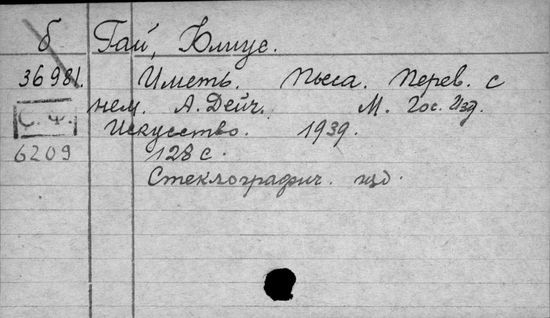 б Гай, Юлиус.
36981. Иметь. Пьеса. Перев. с
нем. А. Дейч. М. Гос. Изд.
С. Ф.
Искусство. 1939.
6209 128 с.
Стеклографич. изд.